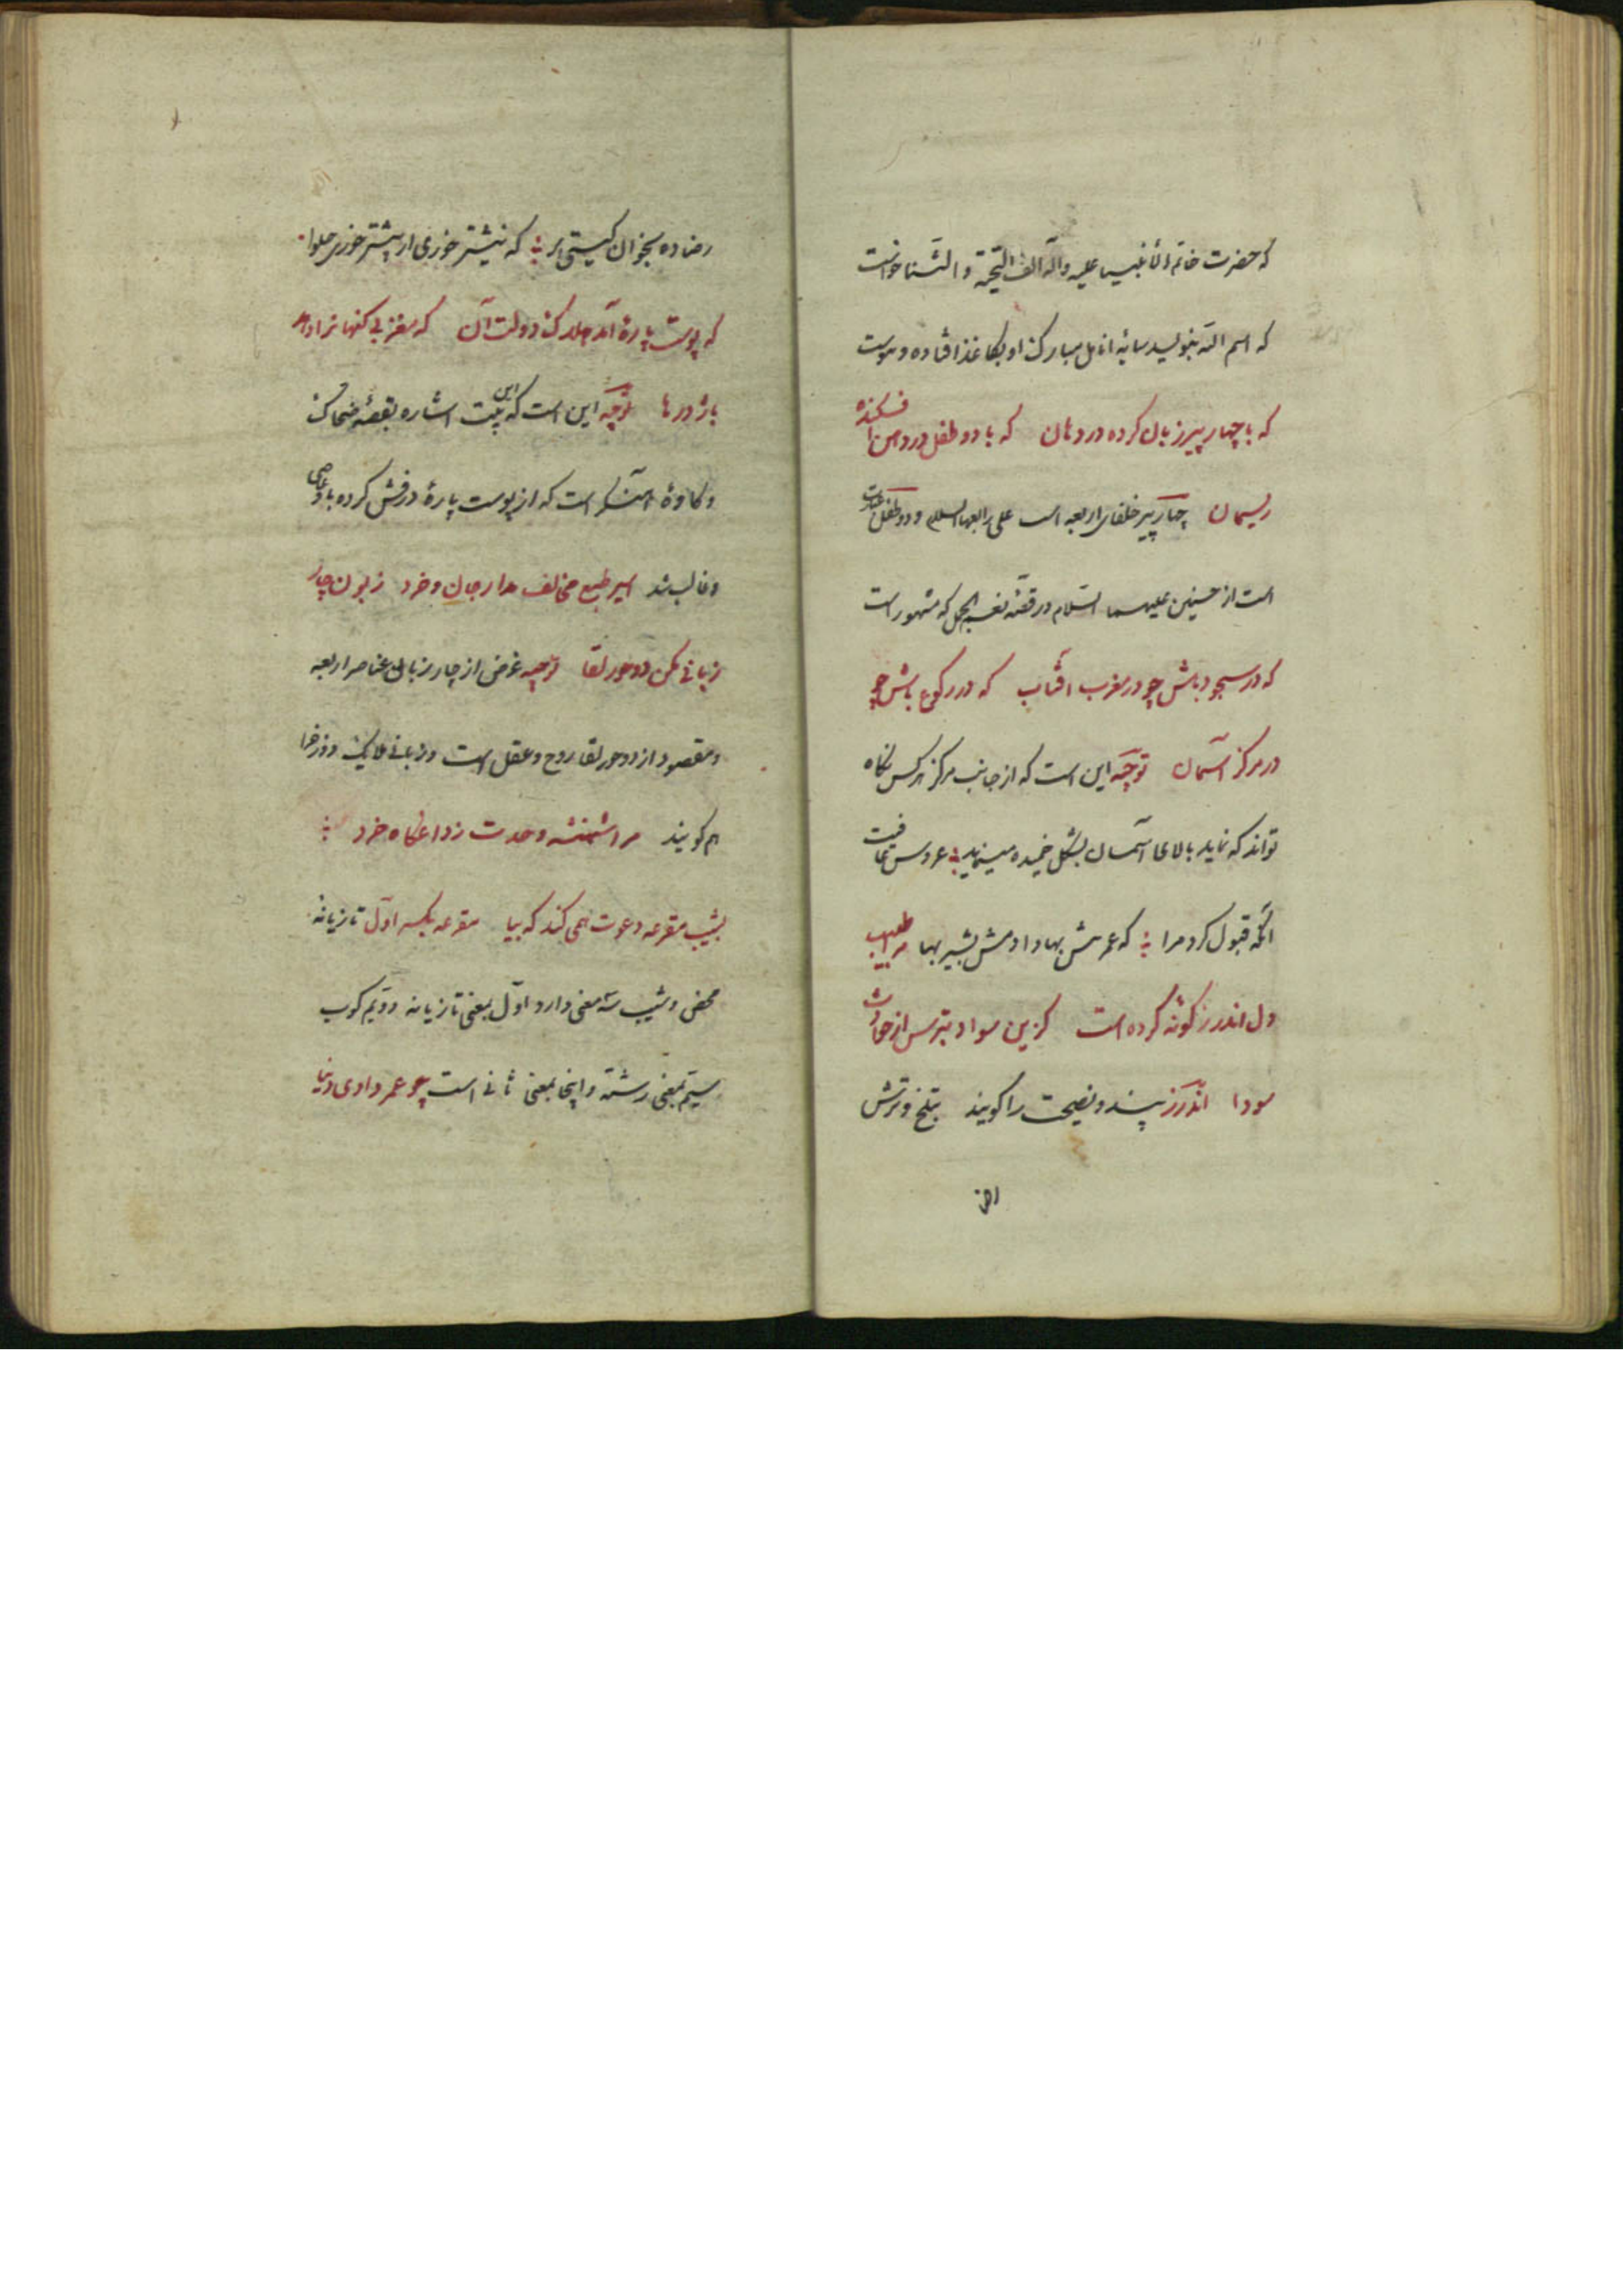 که حضرت خاتم الانبیا علیه وآله الف التحیة و الثنا خواست
که اسم الله بنویسد سایهٔ انامل مبارک او بکاغذ افتاده و بوست
که با چهار پیر زبان کرده در دهان که با دو طفل در دهن افکنده
ریسمان چهار پیر خلفای اربعه است علی رابعها السلام و دو طفل عبارت
است از حسنین علیهما السلام در قصّه نعم الجمل که مشهور است
که در سجود باش چو در مغرب آفتاب که در رکوع باش چو
در مرکز آسمان توجّه این است که از جانب مرکز هر کس نگاه
تواند که نماید بالای آسمان بشکل خمیده مینماید عروس عافیت
آنگه قبول کرد مرا که عمر بیش بها دادمش بشیر بها طبیب
دل اندرز گونه کرده است کزین سواد بترس از حوادث
سودا اندرز پند و نصیحت را گویند بتلخ و ترش
رضا
رضا ده بخوان گیتی بر که نیشتر خوری ار بیشتر خوری حلوا
که پوست پارهٔ آمد هلاک دولت آن که مغز بی گنهان را دهد
باژدرها توجّه این است که این بیت اشاره بقصهٔ ضحاک
و کاوهٔ آهنگر است که از پوست پارهٔ درفش کرده باو عاصی
و غالب شد اسیر طبع مخالف مدار جان و خرد زبون چار
زبانی مکن دو حور لقا توجیه غرض از چار زبان عناصر اربعه
و مقصود از دو حور لقا روح و عقل است و زبانی ملایک دوزخ را
هم گویند مرا شهنشه وحدت ز داغگاه خرد
بشیب مقرعه دعوت همی کند که بیا مقرعه بکسر اوّل تازیانه
محض و شیب سه معنی دارد اوّل بمعنی تازیانه دویم کوب
سیم بمعنی رشته و اینجا بمعنی ثانی است چو عمر دادی دنیا